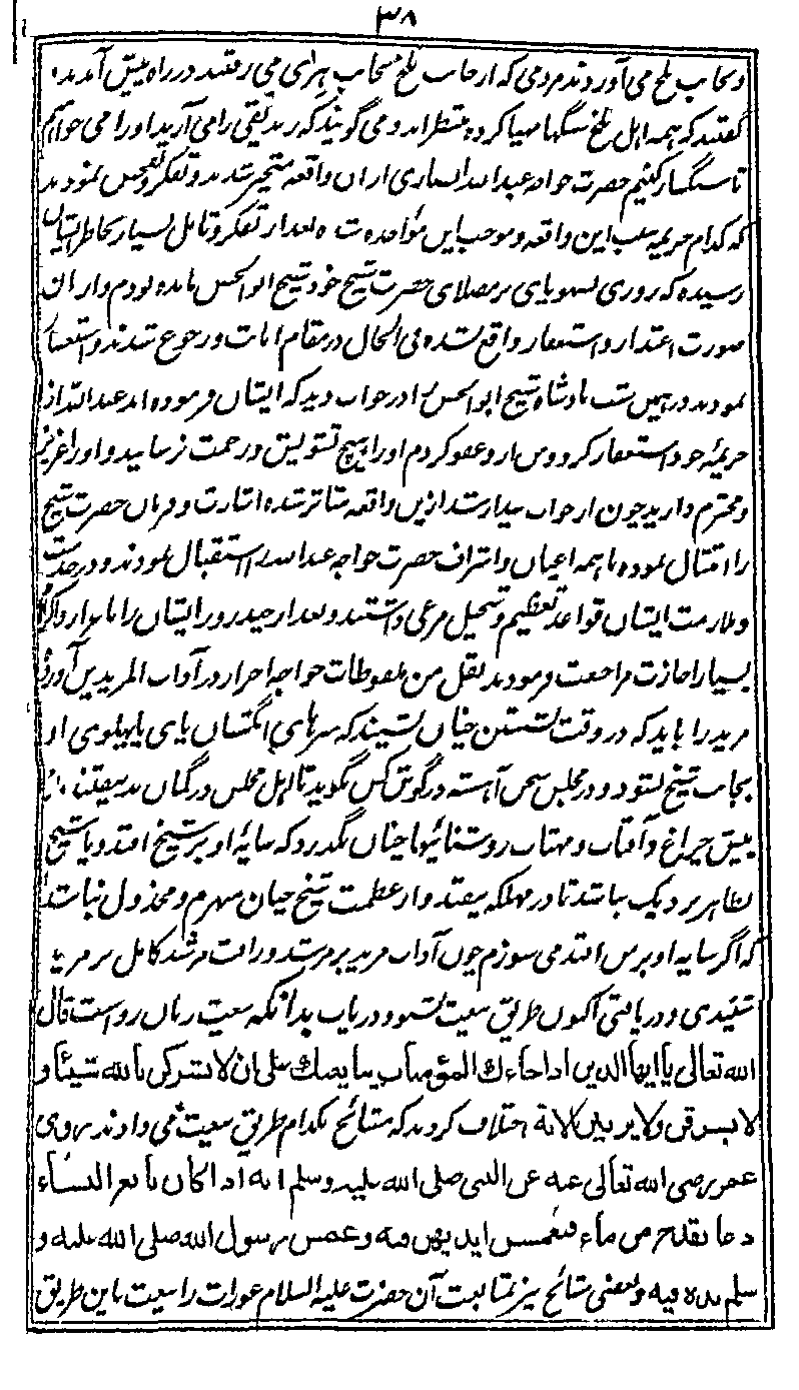 ۳۸
و بجانب بلخ می آوردند مردمی که از جانب بلخ بجانب هرای می رفتند در راه پیش آمدند
گفتند که همه اهل بلخ سنگها مهیا کرده منتظر اند و می گویند که زندیقی را می آرید او را می خواهیم
تا سنگسار کنیم حضرت خواجه عبدالله انصاری ازان واقعه متحیر شدند و تفکر و تفحص نمودند
که کدام جریمه سبب این واقعه و موجب این مؤاخذه است بعد از تفکر و تامل بسیار بخاطر ایشان
رسیده که روزی بسهو پای بر مصلای حضرت شیخ خود شیخ ابوالحسن مانده بودم و ازان
صورت اعتذار و استغفار واقع نشده فی الحال در مقام انابت و رجوع شدند و استغفار
نمودند در همین شب بادشاه شیخ ابوالحسن را در خواب دید که ایشان فرموده اند عبدالله از
جریمهٔ خود استغفار کرد و من از و عفو کردم او را هیچ تشویش و زحمت نرسانید و او را عزیز
و محترم دارید چون از خواب بیدار شد ازین واقعه متاثر شده اشارت و فرمان حضرت شیخ
را امتثال نموده با همه اعیان و اشراف حضرت خواجه عبدالله را استقبال نمودند و در خدمت
و ملازمت ایشان قواعد تعظیم و تبجیل مرعی داشتند و بعد از چند روز ایشان را با اعزاز و اکرام
بسیار اجازت مراجعت فرمودند نقل من ملفوظات خواجه احرار در آداب المریدین آورده
مرید را باید که در وقت نشستن چنان نشیند که سرهای انگشتان پای پهلوی او
بجانب شیخ نشود و در مجلس سخن آهسته در گوش کس نگوید تا اهل مجلس در گمان بد نیفتند
پیش چراغ و آفتاب و مهتاب روشنائیها چنان نگذرد که سایهٔ او بر شیخ افتد و با شیخ
بظاهر نزدیک نباشد تا در مهلکه نیفتد و از عظمت شیخ حیان مبهرم و مخذول نباشد
که اگر سایه او بر من افتد می سوزم چون آداب مرید بر مرشد و رافت مرشد کامل بر مرید
شنیدی و دریافتی اکنون طریق بیعت بشنو و دریاب بدانکه بیعت زنان رواست قال
الله تعالی یا ایها الذین اذا جاءك المؤمنات یبایعنك علی ان لا یشرکن بالله شیئا و
لا یسرقن ولا یزنین الآیة اختلاف کردند که مشائخ بکدام طریق بیعت می دادند روی
عمر رضی الله تعالی عنه عن النبی صلی الله علیه وسلم انه اذا کان بایع النساء
دعا بقدح من ماء فغمس ایدیهن فیه و غمس رسول الله صلی الله علیه و
سلم یده فیه و بعضی مشائخ نیز بمتابعت آن حضرت علیه السلام عورات را بیعت باین طریق